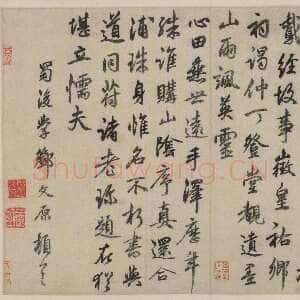 戴經故事徵皇祐鄉
祠謁仲丁登堂觀遺畫
山雨颯英靈
心田垂世遠手澤歷年
殊誰購山陰序真還合
浦珠身惟名不朽書與
道同符諸老珎題在猶
堪立懦夫
蜀後學鄧文原頓首